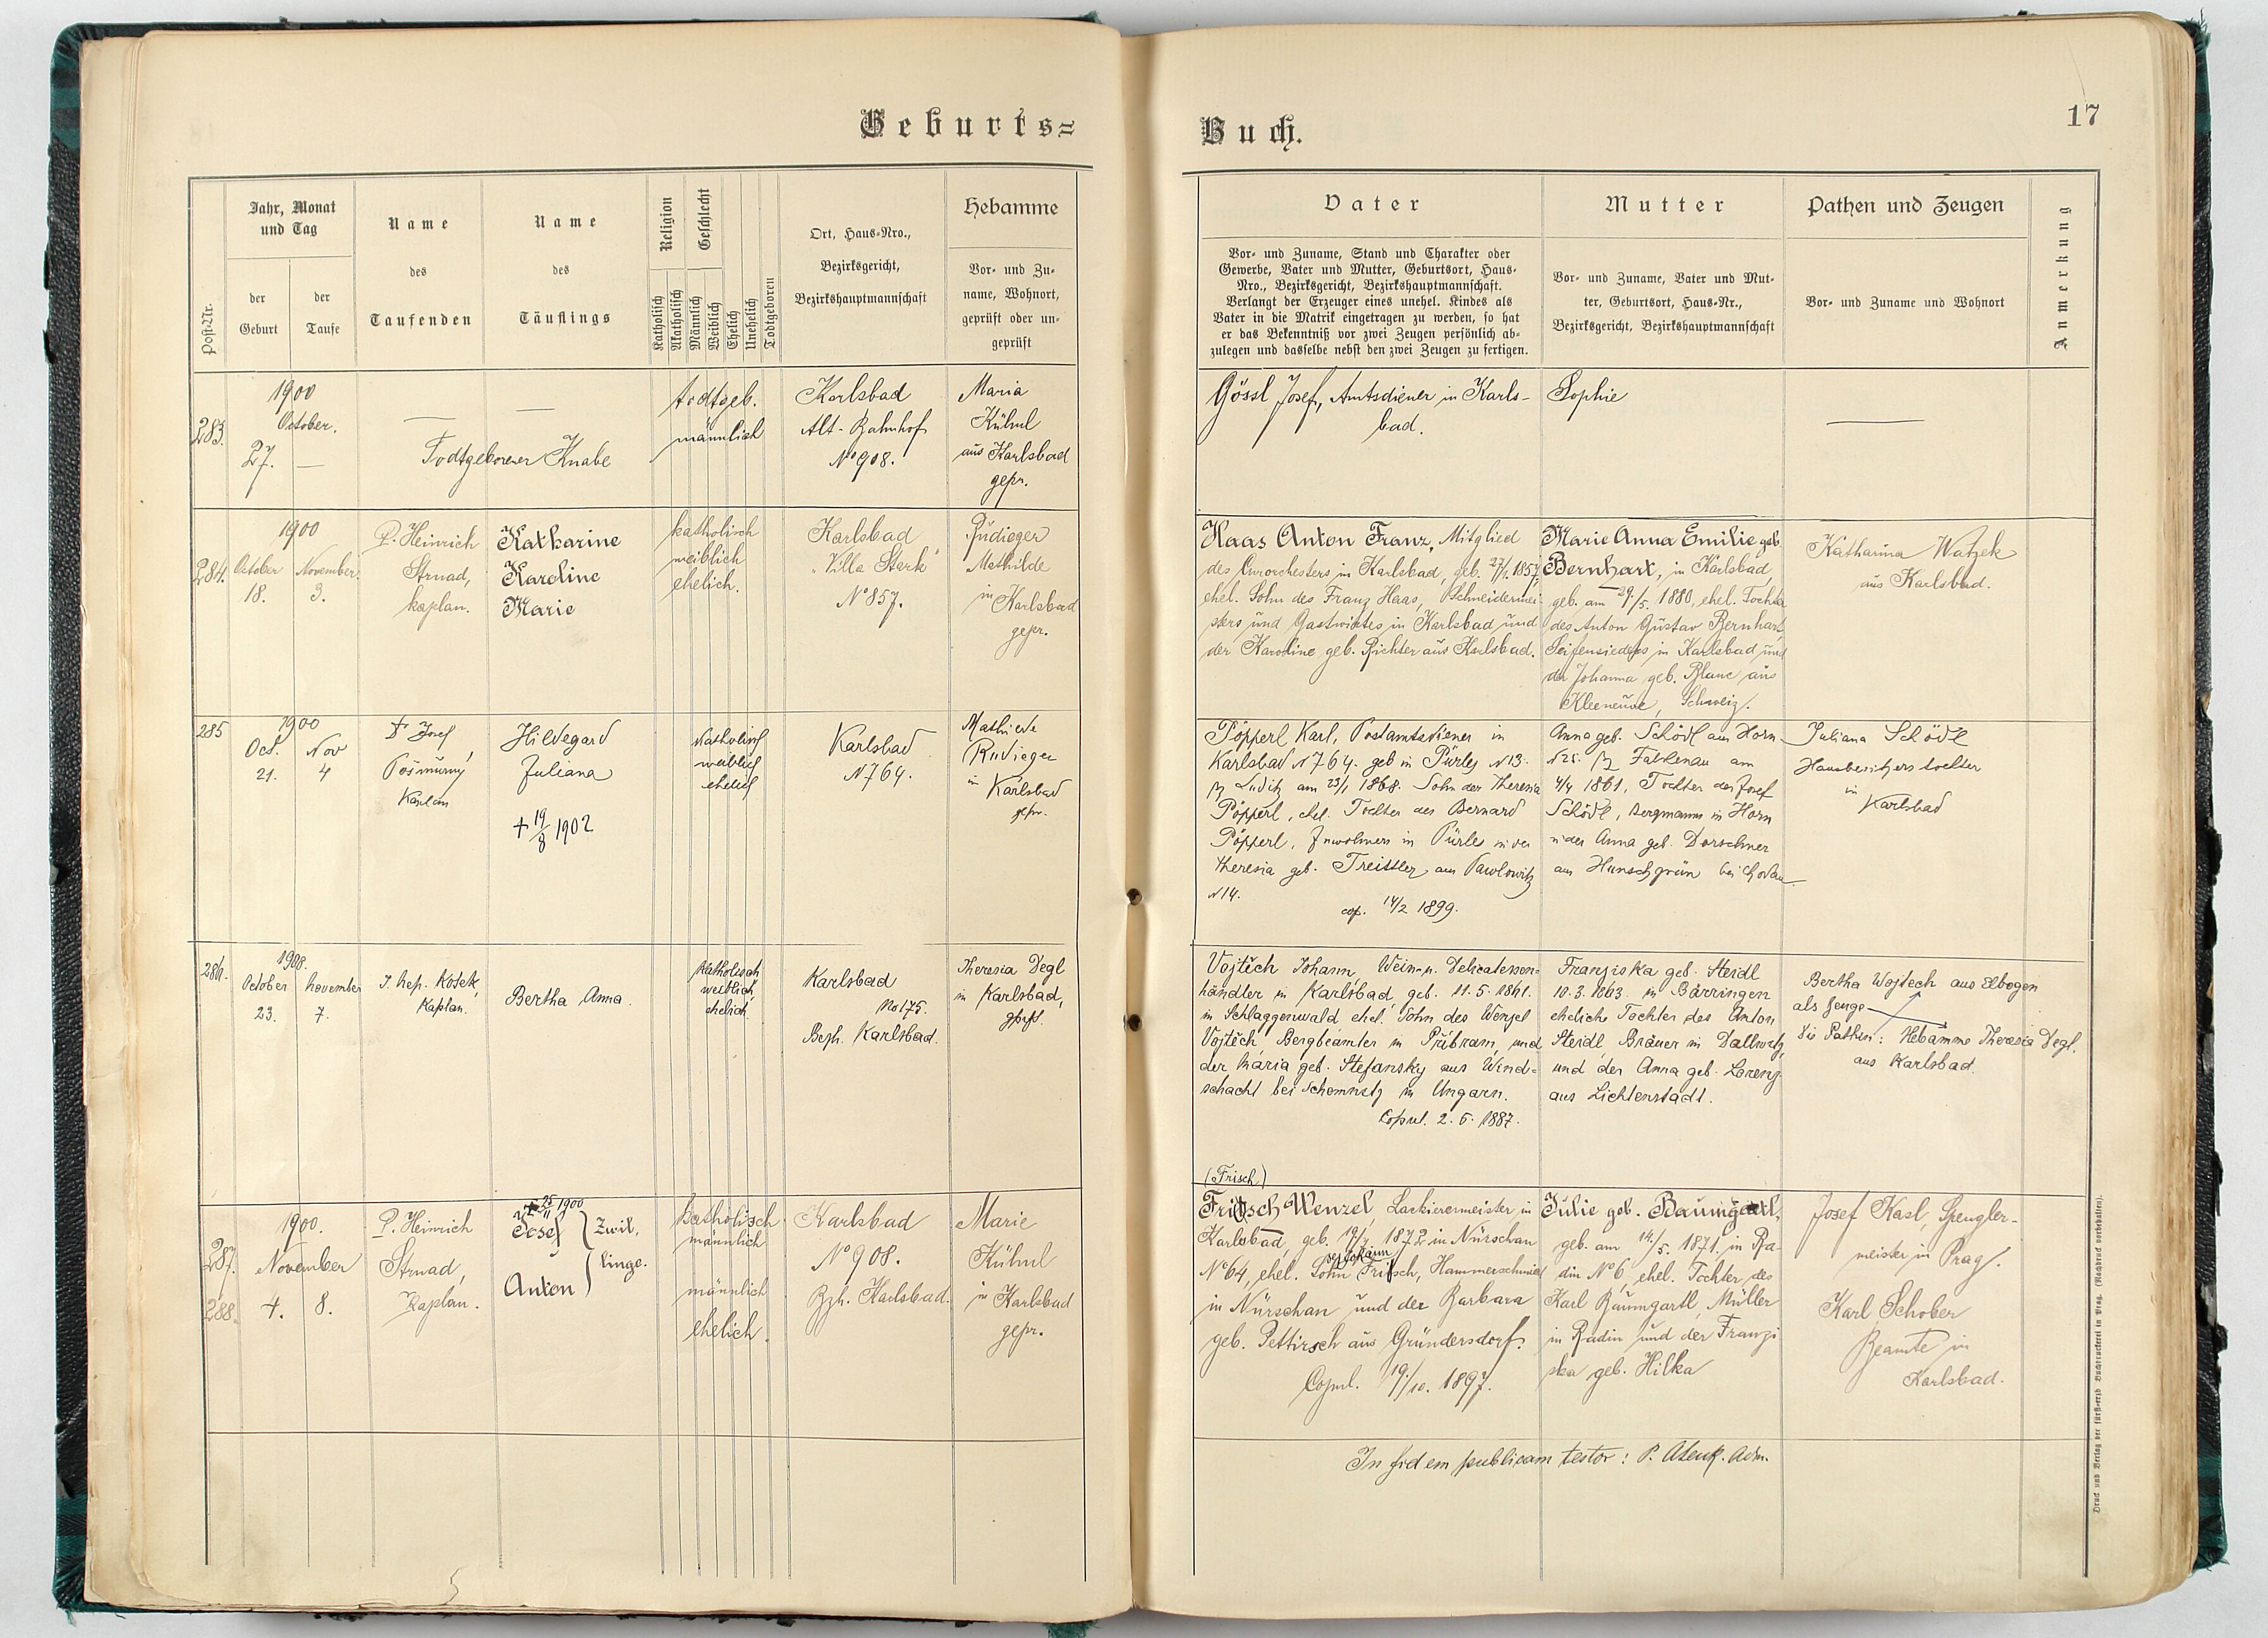 Geburts=
Buch.
17
Post-Nr.
Jahr, Monat
und Tag
der
Geburt
der
Taufe
Name
des
Taufenden
Name
des
Täuflings
Religion
Katholisch
Akatholisch
Geschlecht
Männlich
Weiblich
Ehelich
Unehelich
Todtgeboren
Ort, Haus-Nro.,
Bezirksgericht,
Bezirkshauptmannschaft
Hebamme
Vor- und Zu-
name, Wohnort,
geprüft oder un-
geprüft
Vater
Vor- und Zuname, Stand und Charakter oder
Gewerbe, Vater und Mutter, Geburtsort, Haus-
Nro., Bezirksgericht, Bezirkshauptmannschaft.
Verlangt der Erzeuger eines unehel. Kindes als
Vater in die Matrik eingetragen zu werden, so hat
er das Bekenntniß vor zwei Zeugen persönlich ab-
zulegen und dasselbe nebst den zwei Zeugen zu fertigen.
Mutter
Vor- und Zuname, Vater und Mut-
ter, Geburtsort, Haus-Nr.,
Bezirksgericht, Bezirkshauptmannschaft
Pathen und Zeugen
Vor- und Zuname und Wohnort
Anmerkung
283.
1900
October.
27. —
—
—
Todtgeborener Knabe
todtgeb.
männlich
Karlsbad
Alt-Bahnhof
N° 908.
Maria
Kühnl
aus Karlsbad
gepr.
Gössl Josef, Amtsdiener in Karls-
bad.
Sophie
—
284.
1900
October November
18. 3.
P. Heinrich
Strnad,
kaplan.
Katharine
Karoline
Marie
katholisch
weiblich
ehelich.
Karlsbad
"Villa Stark"
N° 857.
Rüdieger
Mathilde
in Karlsbad
gepr.
Haas Anton Franz, Mitglied
des Curorchesters in Karlsbad, geb. 27/1. 1857,
ehel. Sohn des Franz Haas, Schneidermei-
sters und Gastwirtes in Karlsbad und
der Karoline geb. Richter aus Karlsbad.
Marie Anna Emilie geb.
Bernhart, in Karlsbad,
geb. am 29./5. 1880, ehel. Tochter
des Anton Gustav Bernhart,
Seifensieders in Karlsbad und
der Johanna geb. Blanc aus
Schweiz.
Katharina Watzek
aus Karlsbad.
285
1900
Oct. Nov
21. 4
P Josef
Pošmurný
Kaplan
Hildegard
Juliana
+ 19/8 1902
Katholisch
weiblich
ehelich
Karlsbad
N 764.
Mathilde
Rudieger
in Karlsbad
gepr.
Pöpperl Karl, Postamtsdiener in
Karlsbad N 764. geb in Pürles N 13.
Bz Luditz am 23/1 1868. Sohn der Theresia
Pöpperl, ehel. Tochter des Bernard
Pöpperl, Inwohners in Pürles u der
Theresia geb. Treissler aus Pawlowitz
N 14.
cop. 14/2 1899.
Anna geb. Schödl aus Horn
N 25. Bz Falkenau am
4/4 1861, Tochter des Josef
Schödl, Bergmanns in Horn
u der Anna geb. Dorschner
aus Hunschgrün bei Chodau
Juliana Schödl
Hausbesitzerstochter
in
Karlsbad
286.
1900.
October November
23. 7.
J. Nep. Košek,
Kaplan.
Bertha Anna.
Katholisch
weiblich
ehelich.
Karlsbad
No 175.
Bezh. Karlsbad.
Theresia Degl
in Karlsbad,
gepr.
Vojtěch Johann, Wein- u. Delicatessen=
händler in Karlsbad, geb. 11. 5. 1861.
in Schlaggenwald ehel. Sohn des Wenzel
Vojtěch Bergbeamter in Přibram, und
der Maria geb. Stefansky aus Wind=
schacht bei Schemnitz in Ungarn.
Copul. 2. 5. 1887.
Franziska geb. Steidl
10. 3. 1863 in Bärringen
eheliche Tochter des Anton
Steidl, Bräuer in Dallwitz,
und der Anna geb. Lorenz
aus Lichtenstadt.
Bertha Wojtech aus Elbogen
als Zeuge
Die Pathin: Hebamme Theresia Degl.
aus Karlsbad.
287.
288.
1900.
November
4. 8.
P. Heinrich
Strnad,
Kaplan.
+ 25/11 1900
Josef
Anton
Zwil,
linge.
katholisch
männlich
männlich
ehelich.
Karlsbad
N° 908.
Bzh. Karlsbad.
Marie
Kühnl
in Karlsbad
gepr.
(Frisch)
Fritsch Wenzel, Lackierermeister in
Karlsbad, geb. 19/7. 1872 in Nürschan
des Johann
N° 64, ehel. Sohn Fritsch, Hammerschmied
in Nürschan und der Barbara
geb. Pettirsch aus Gründersdorf.
Copul. 19./10. 1897.
Julie geb. Baumgartl,
geb. am 14./5. 1871. in Ra-
din N° 6, ehel. Tochter des
Karl Baumgartl, Müller
in Radin und der Franzi
ska geb. Hilka
Josef Kasl, Spengler-
meister in Prag.
Karl Schober
Beamte in
Karlsbad.
In fidem publicam testor: P. Adm.
Druck und Verlag der fürst-erzb. Buchdruckerei in Prag. (Nachdruck vorbehalten).